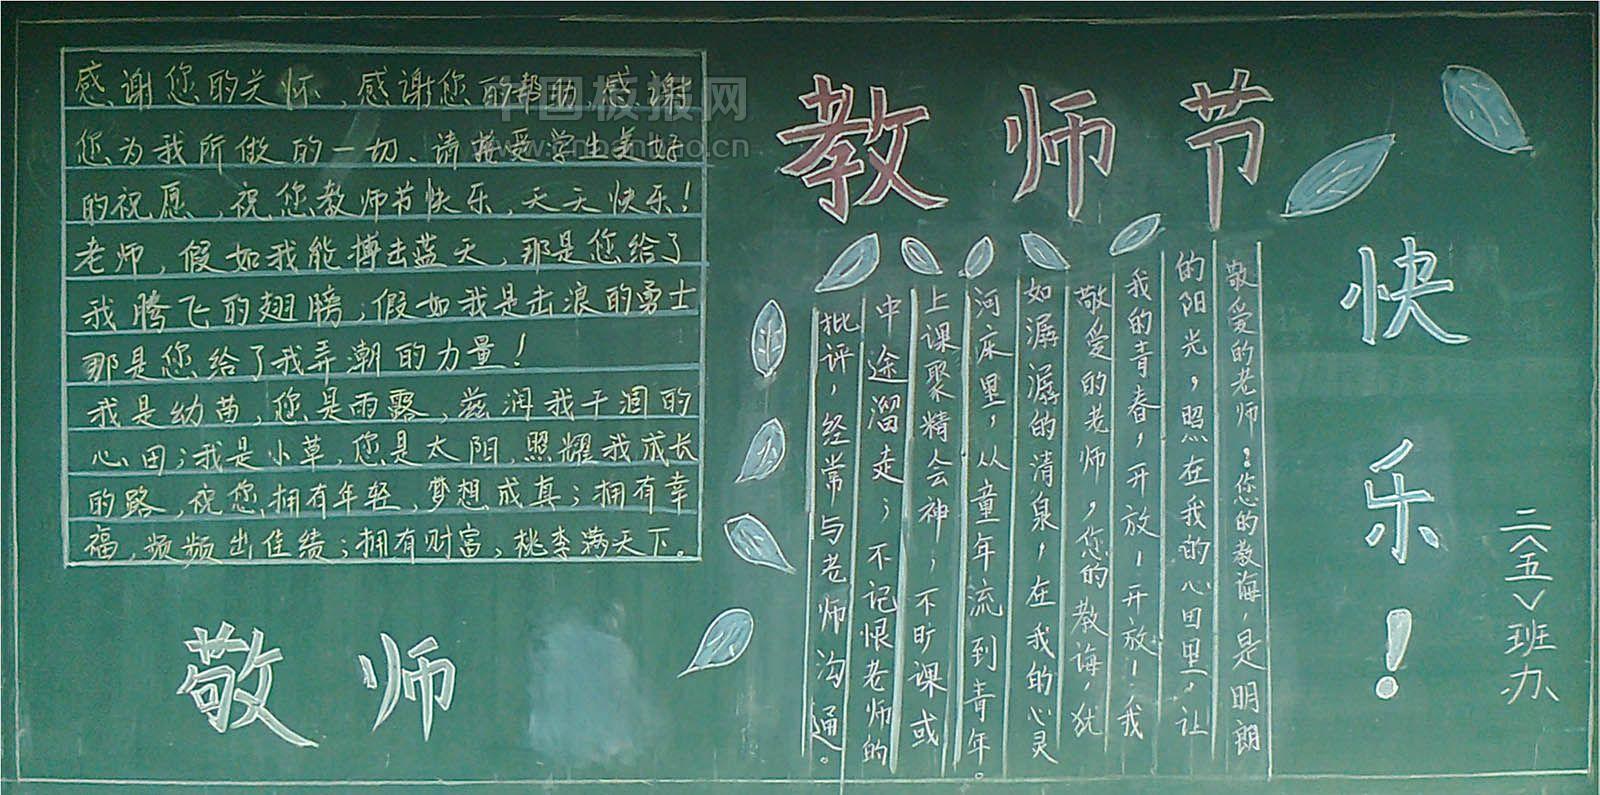 感谢您的关怀，感谢您的帮助，感谢
您为我所做的一切、请接受学生美好
的祝愿，祝您教师节快乐，天天快乐！
老师，假如我能搏击蓝天，那是您给了
我腾飞的翅膀；假如我是击浪的勇士
那是您给了我弄潮的力量！
我是幼苗，您是雨露，滋润我干涸的
心田；我是小草，您是太阳，照耀我成长
的路，祝您拥有年轻，梦想成真；拥有幸
福，频频出佳绩；拥有财富，桃李满天下。
敬师
教师节
快乐！
敬爱的老师：您的教诲，是明朗
的阳光，照在我的心田里，让
我的青春，开放！开放！我
敬爱的老师，您的教诲，犹
如潺潺的清泉，在我的心灵
河床里，从童年流到青年。
上课聚精会神；不旷课或
中途溜走；不记恨老师的
批评，经常与老师沟通。
二〈五〉班办
中国板报网
www.cnbanbao.cn